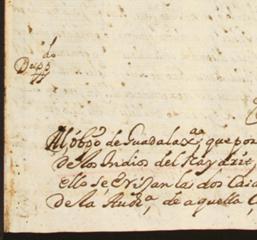 Dupp.do
Al Obpo de Guadalaxa.ra, que por
de los Indios del Nayarit
ello se erijan las dos Caxa
de la Audia, de aquella C